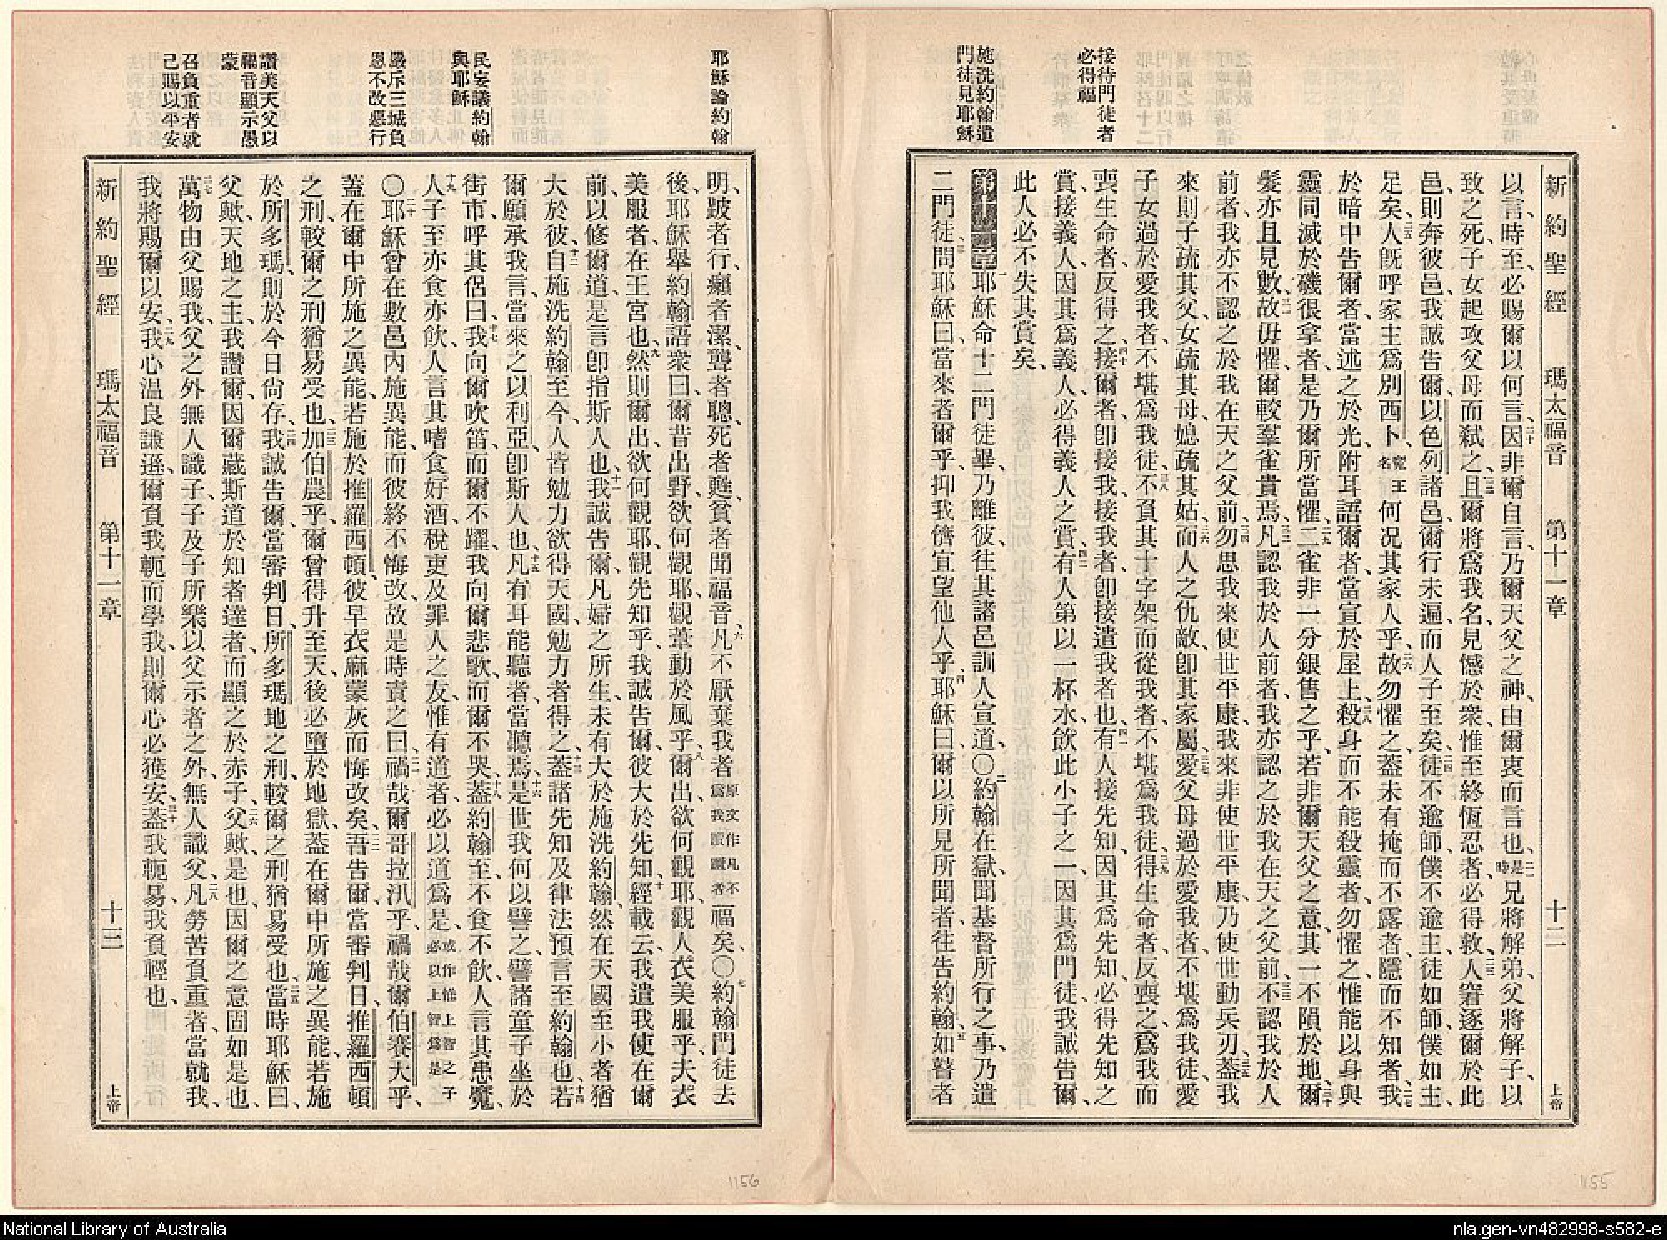 接待門徒者
必得福
施洗約翰遣
門徒見耶穌
新約聖經 瑪太福音 第十一章 十二 上帝
以言、時至必賜爾以何言、因非爾自言、乃爾天父之神、由爾衷而言也、是時兄將解弟、父將解子以
致之死、子女起攻父母而弒之、且爾將爲我名、見憾於衆、惟至終恆忍者、必得救、人窘逐爾於此
邑、則奔彼邑、我誠告爾、以色列諸邑、爾行未遍、而人子至矣、徒不逾師、僕不逾主、徒如師、僕如主、
足矣、人旣呼家主爲別西卜鬼王名何況其家人乎、故勿懼之、蓋未有掩而不露者、隱而不知者、我
於暗中告爾者、當述之於光、附耳語爾者、當宣於屋上、殺身而不能殺靈者、勿懼之、惟能以身與
靈同滅於磯很拿者、是乃爾所當懼、二雀非一分銀售之乎、若非爾天父之意、其一不隕於地、爾
髮亦且見數、故毋懼、爾較羣雀貴焉、凡認我於人前者、我亦認之於我在天之父前、不認我於人
前者、我亦不認之於我在天之父前、勿思我來使世平康、我來非使世平康、乃使世動兵刃、蓋我
來則子疏其父、女疏其母、媳疏其姑、而人之仇敵、卽其家屬、愛父母過於愛我者、不堪爲我徒、愛
子女過於愛我者、不堪爲我徒、不負其十字架而從我者、不堪爲我徒、得生命者、反喪之、爲我而
喪生命者、反得之、接爾者、卽接我、接我者、卽接遣我者也、有人接先知、因其爲先知、必得先知之
賞、接義人、因其爲義人、必得義人之賞、有人第以一杯水、飮此小子之一、因其爲門徒、我誠告爾、
此人必不失其賞矣、
第十一章耶穌命十二門徒畢、乃離彼、往其諸邑、訓人宣道、〇約翰在獄、聞基督所行之事、乃遣
二門徒、問耶穌曰、當來者爾乎、抑我儕宜望他人乎、耶穌曰、爾以所見所聞者、往吿約翰、如瞽者
耶穌論約翰
民妄議約翰
與耶穌
嚴斥三城負
恩不改惡行
讚美天父以
福音顯示愚
蒙
召負重者就
己賜以平安
明、跛者行、癩者潔、聾者聰、死者甦、貧者聞福音、凡不厭棄我者原文作凡不爲我躓蹶者福矣、〇約翰門徒去
後、耶穌舉約翰語衆曰、爾昔出野、欲何觀耶、觀葦動於風乎、爾出欲何觀耶、觀人衣美服乎、夫衣
美服者、在王宮也、然則爾出、欲何觀耶、觀先知乎、我誠告爾、彼大於先知、經載云、我遣我使在爾
前、以修爾道、是言卽指斯人也、我誠告爾、凡婦之所生、未有大於施洗約翰、然在天國至小者、猶
大於彼、自施洗約翰至今、人皆勉力欲得天國、勉力者得之、蓋諸先知及律法預言、至約翰也、若
爾願承我言、當來之以利亞、卽斯人也、凡有耳能聽者、當聽焉、是世我何以譬之、譬諸童子坐於
街市、呼其侶曰、我向爾吹笛、而爾不躍、我向爾悲歌、而爾不哭、蓋約翰至、不食不飮、人言其患魔、
人子至、亦食亦飮、人言其嗜食好酒、稅吏及罪人之友、惟有道者、必以道爲是、或作惟上智之子必以上智爲是
〇耶穌曾在數邑內施異能、而彼終不悔改、故是時責之曰、禍哉爾哥拉汛乎、禍哉爾伯賽大乎、
蓋在爾中所施之異能、若施於推羅西頓、彼早衣麻蒙灰而悔改矣、吾告爾、當審判日、推羅西頓
之刑、較爾之刑猶易受也、加伯農乎、爾曾得升至天、後必墮於地獄、蓋在爾中所施之異能、若施
於所多瑪、則於今日尙存、我誠告爾、當審判日、所多瑪地之刑、較爾之刑猶易受也、當時耶穌曰、
父歟、天地之主、我讚爾、因爾藏斯道於知者達者、而顯之於赤子、父歟、是也、因爾之意固如是也、
萬物由父賜我、父之外、無人識子、子及子所樂以父示者之外、無人識父、凡勞苦負重者、當就我、
我將賜爾以安、我心溫良謙遜、爾負我軛而學我、則爾心必獲安、蓋我軛易、我負輕也、
新約聖經 瑪太福音 第十一章 十三 上帝
1156
1155
National Library of Australia
nla.gen-vn482998-s582-e